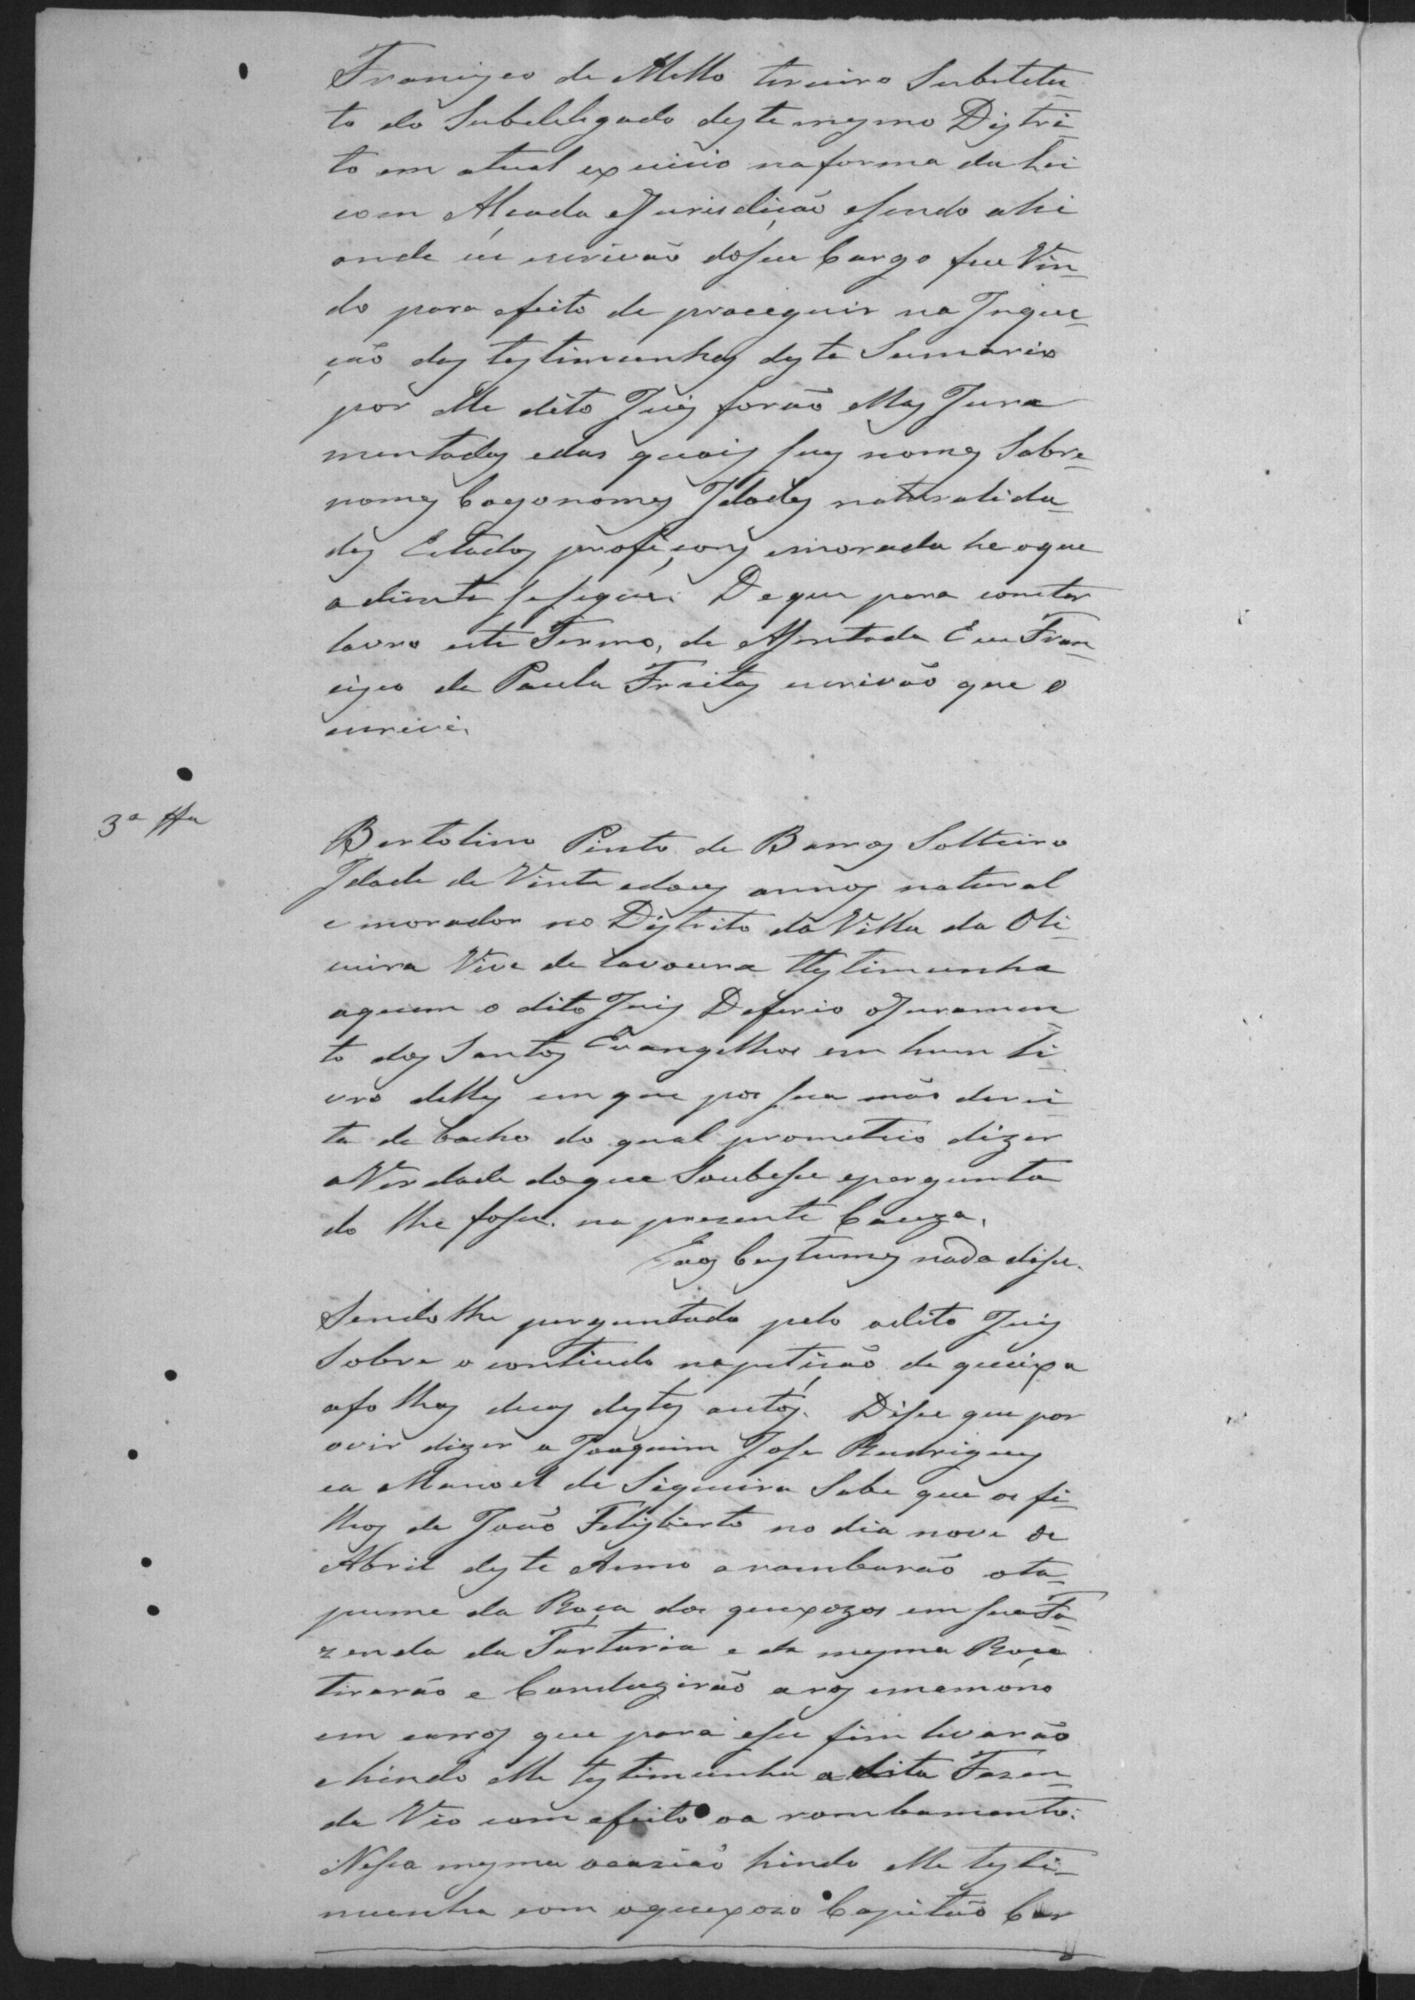 Francisco de Mello terceiro Substetu-
to do Subdelegado deste mesmo Distri-
to em atual exercicio na forma da Lei
com Alçada eJurisdicção esendo ahi
onde eu escrivão doseu Cargo fue Vin-
do para efeito de proceguir na Inque-
ção das testimunhas deste Sumario
por elle dito Juis forão ellas Jura
mentadas edas quais seus nomes Sobre-
nomes Cognomes Idades naturalida-
des Estados profiçoens emorada he oque
adiente sesegue. Deque para constar
lavro este Termo, de Asentada Eu Fran-
cisco de Paula Freitas escrivão que o
escrevi.
3ª tta
Bertolino Pinto de Barros Solteiro
Idade de Vinte edous annos natural
e morador no Distrito da Villa da Oli-
veira Vive de lavoura ttestimunha
aquem o dito Juis Deferio oJuramen
to dos Santos Evangelhos em hum li-
vro delles em que pos sua mão direi
ta de bacho do qual prometeo dizer
aVerdade doque Soubese epergunta
do lhe fose na prezente Cauza.
Eaos Custumes nada dise.
Sendo lhe perguntado pelo odito Juis
Sobre o contiudo napetição de queixa
afolhas duas destes autos. Dise que por
ovir dizer a Joaquim Jose Rudrigues
ea Manoel de Siqueira Sabe que os fi-
lhos de João Felisberto no dia nove de
Abril deste Anno arombarão ota-
pume da Roça dos quexozos em suaFa-
zenda da Tartaria e da mesma Roça
tirarão e Conduzirão aros emamono
em carros que para ese fim levarão
ehindo elle testimunha a dita Fazen-
da Vio com efeito oa rombamento.
Nesa mesma ocazião hindo elle testi-
munha com oquexozo Capitão Car